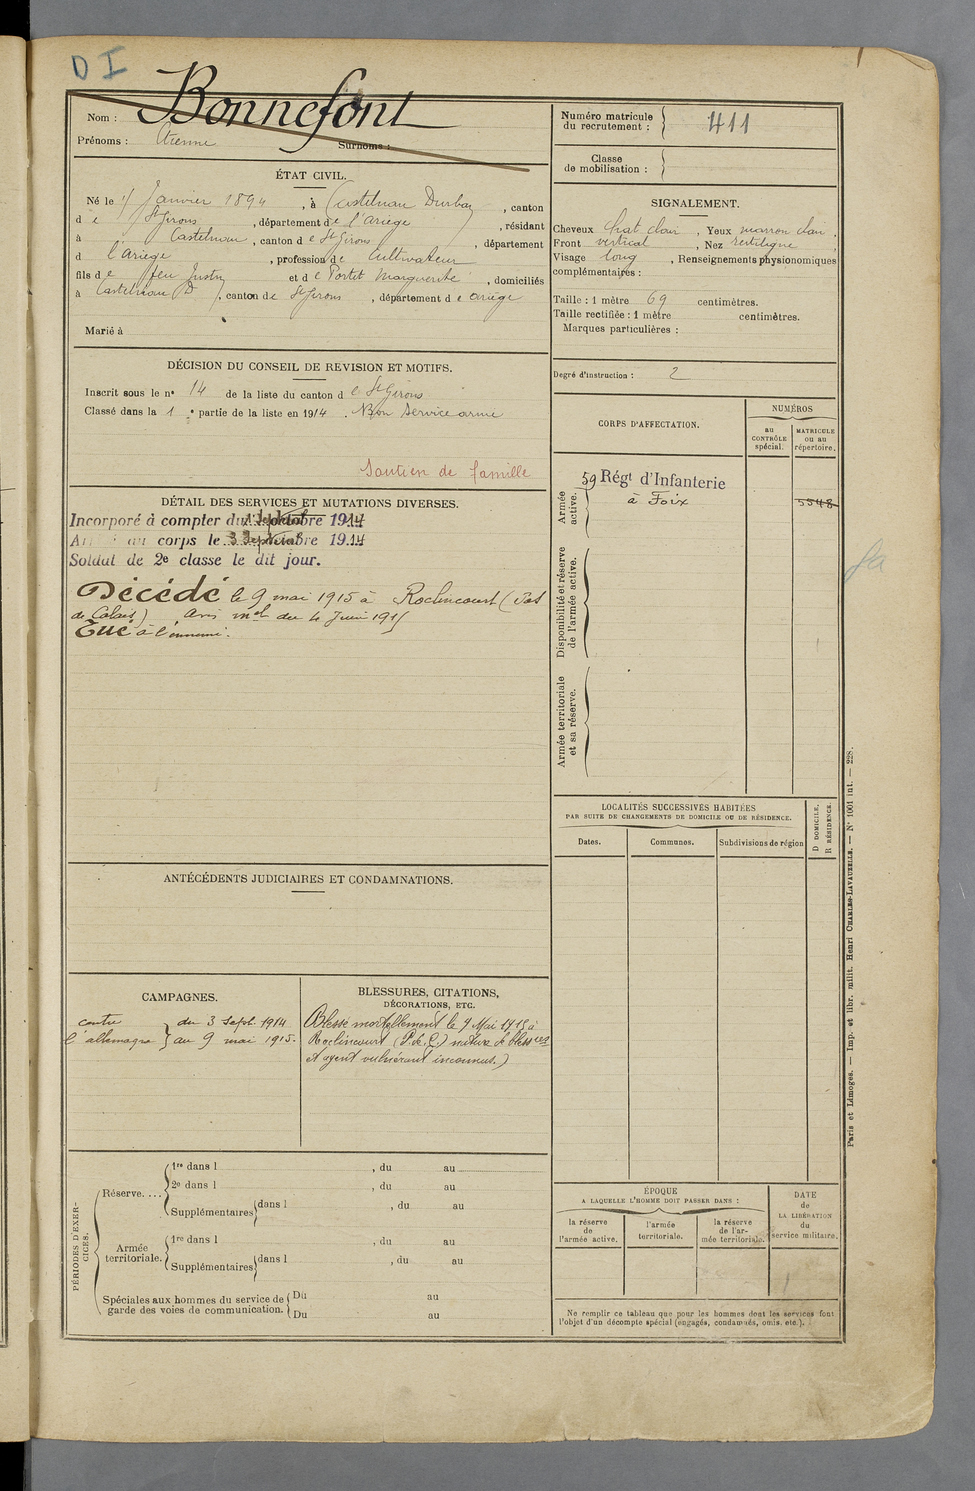 D I
Nom : Bonnefont
Prénoms : Etienne Surnoms :
Numéro matricule
du recrutement : 411
Classe
de mobilisation :
ÉTAT CIVIL.
Né le Janvier 1894, à Castelnau Durban, canton
d e St Girons, département de l'Ariège, résidant
à Castelnau, canton d e St Girons, département
d l'Ariège, profession de Cultivateur
fils de feu Justin et d e Portet Marguerite, domiciliés
à Castelnau D, canton de St Girons, département d e Ariège
Marié à
SIGNALEMENT.
Cheveux chat clair, Yeux marron clair,
Front vertical, Nez rectiligne
Visage long, Renseignements physionomiques
complémentaires :
Taille : 1 mètre 69 centimètres.
Taille rectifiée : 1 mètre centimètres.
Marques particulières :
Degré d'instruction : 2
DÉCISION DU CONSEIL DE REVISION ET MOTIFS.
Inscrit sous le no 14 de la liste du canton d e St Girons
Classé dans la 1 e partie de la liste en 1914. Bon service armé
Soutien de famille
CORPS D'AFFECTATION.
NUMÉROS
au
CONTRÔLE
spécial.
MATRICULE
ou au
répertoire.
Armée
active.
59 Régt d'Infanterie
à Foix
5548
Disponibilité et réserve
de l'armée active.
Armée territoriale
et sa réserve.
DÉTAIL DES SERVICES ET MUTATIONS DIVERSES.
Incorporé à compter du 1914
au corps le 3 Septembre 1914
Soldat de 2e classe le dit jour.
Décédé le 9 mai 1915 à Roclincourt (Pas
de Calais) avis mel du 4 Juin 1915
Tué à l'ennemi.
fa
LOCALITÉS SUCCESSIVES HABITÉES
PAR SUITE DE CHANGEMENTS DE DOMICILE OU DE RÉSIDENCE.
Dates.
Communes.
Subdivisions de région
D DOMICILE,
R RÉSIDENCE.
ANTÉCÉDENTS JUDICIAIRES ET CONDAMNATIONS.
CAMPAGNES.
contre du 3 Sept. 1914
l'allemagne au 9 mai 1915.
BLESSURES, CITATIONS,
DÉCORATIONS, ETC.
Blessé mortellement le 9 Mai 1915 à
Roclincourt (P.d.C.) nature de blessures
et agent vulnérant inconnus.)
PÉRIODES D'EXER-
CICES.
Réserve....
1re dans l , du au
2e dans l , du au
Supplémentaires dans l , du au
Armée
territoriale.
1re dans l , du au
Supplémentaires dans l , du au
Spéciales aux hommes du service de
garde des voies de communication.
Du au
Du au
ÉPOQUE
A LAQUELLE L'HOMME DOIT PASSER DANS :
la réserve
de
l'armée active.
l'armée
territoriale.
la réserve
de l'ar-
mée territoriale.
DATE
de
LA LIBÉRATION
du
service militaire.
Ne remplir ce tableau que pour les hommes dont les services font
l'objet d'un décompte spécial (engagés, condamnés, omis, etc.).
Paris et Limoges. — Imp. et libr. milit. Henri CHARLES-LAVAUZELLE. — No 1001 int. — 228.